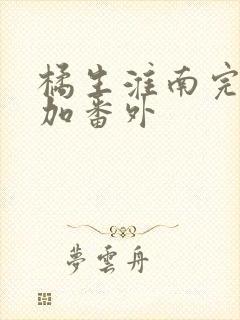 橘生淮南完
加番外
夢雲舟